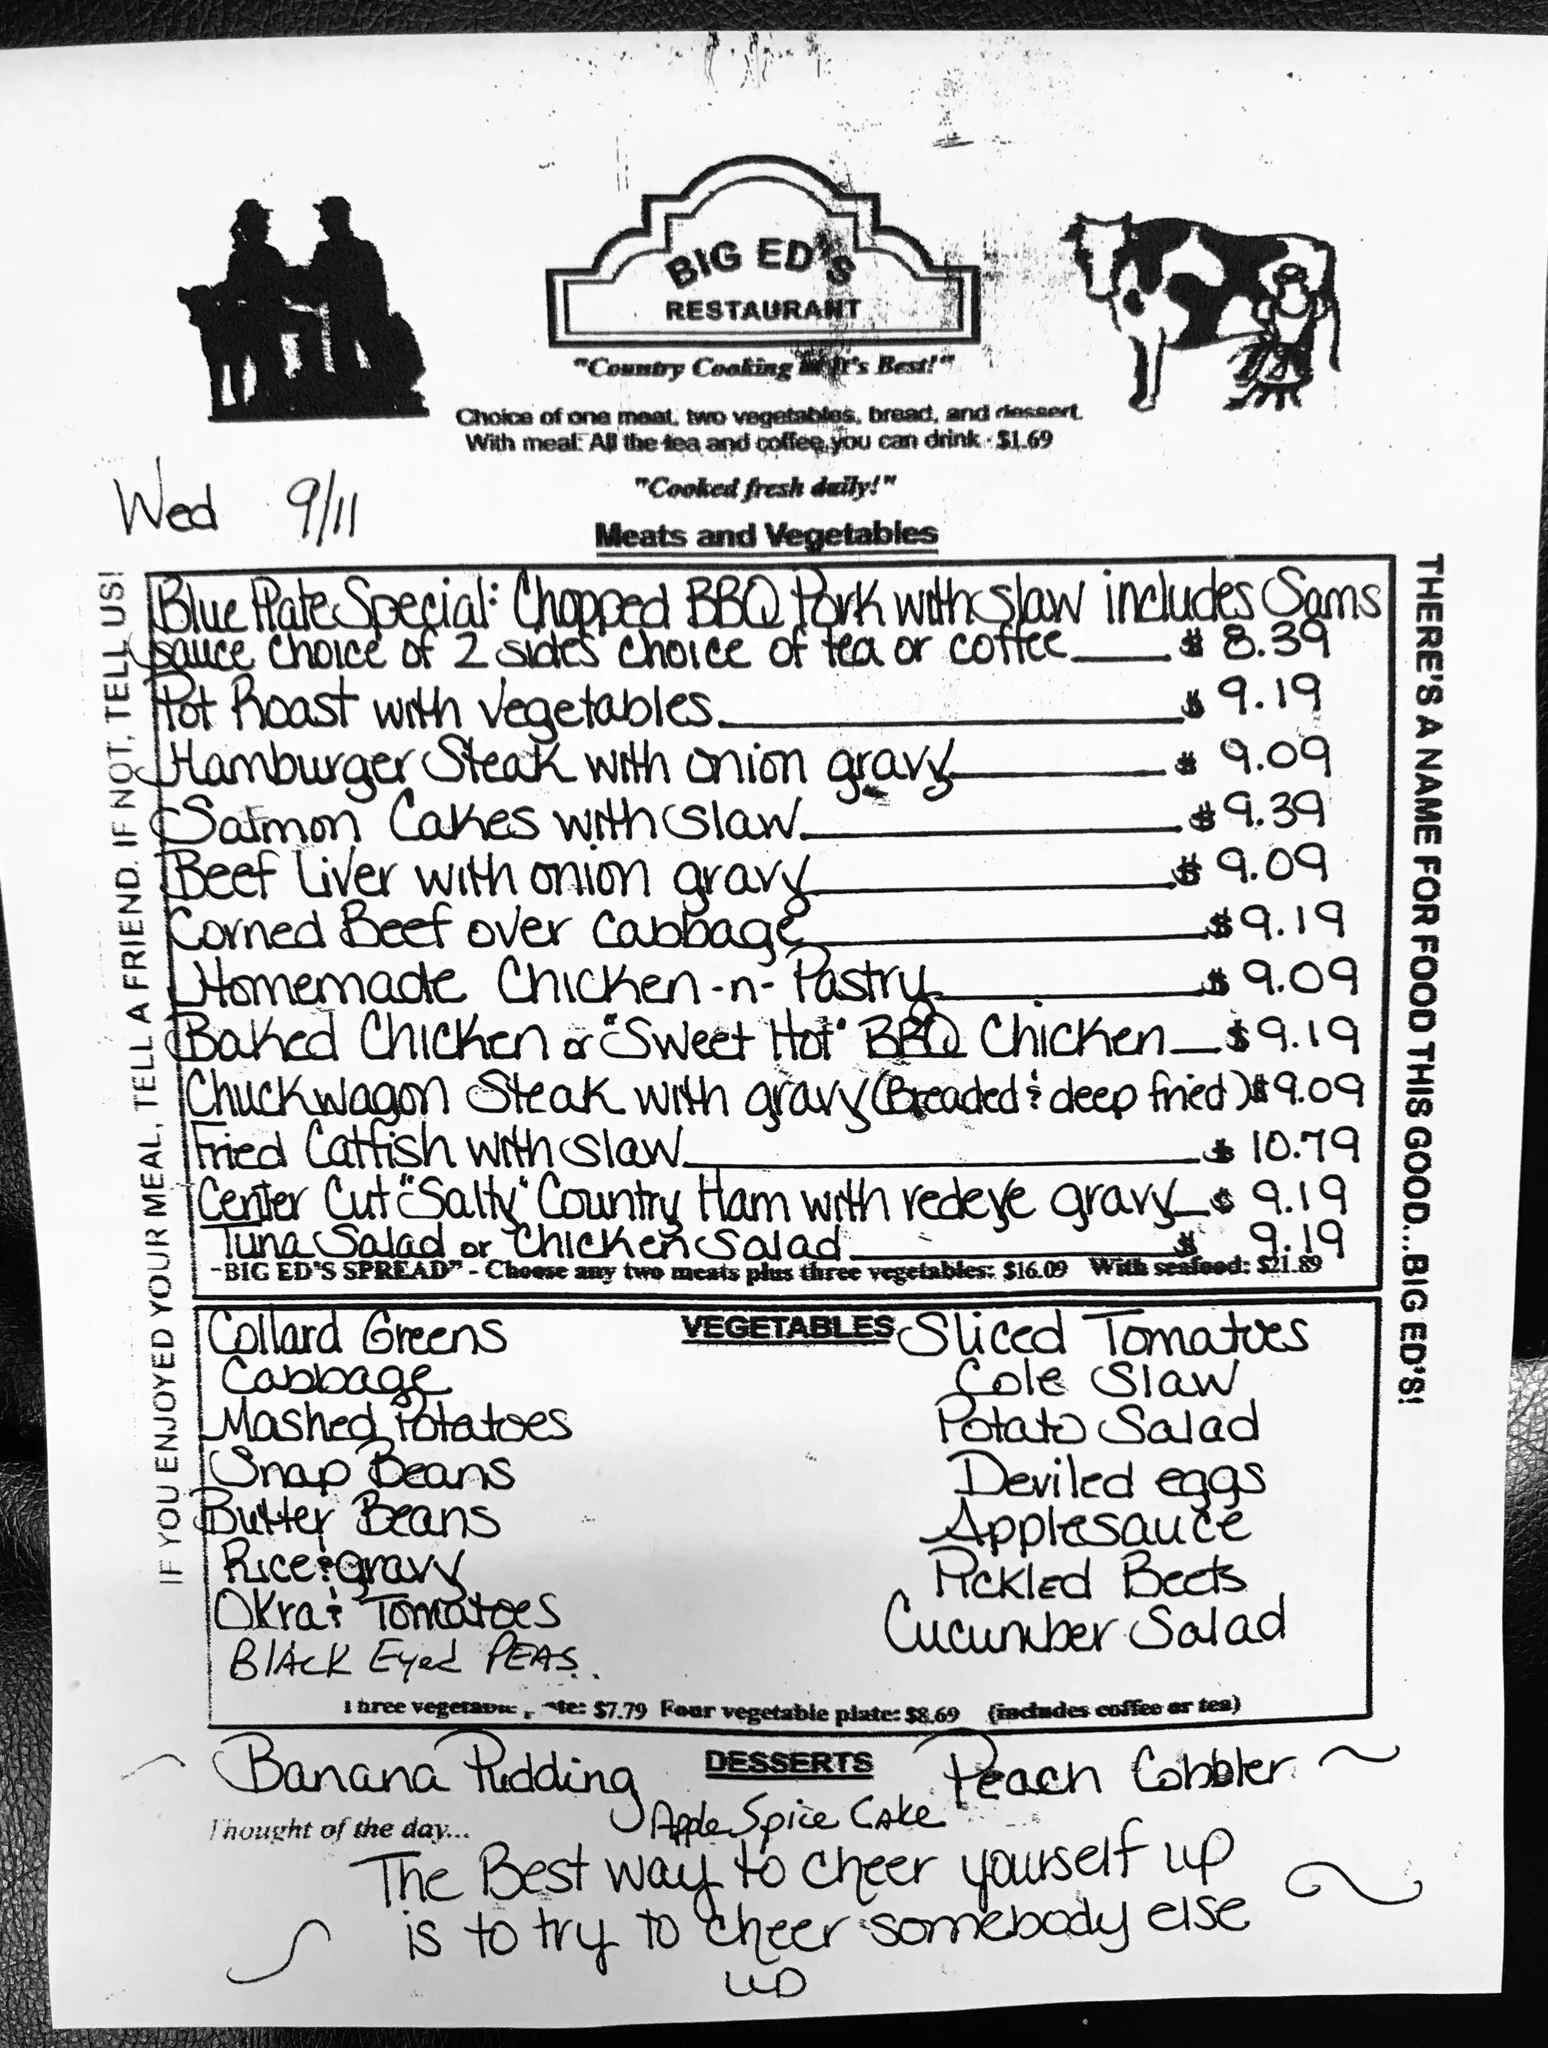 BIG ED'S
RESTAURANT
"Country Cooking at It's Best!"
Choice of one meat, two vegetables, bread, and dessert.
With meal: All the tea and coffee you can drink - $1.69
"Cooked fresh daily!"
Wed 9/11
Meats and Vegetables
Blue Plate Special: Chopped BBQ Pork with slaw includes Sams
sauce choice of 2 sides choice of tea or coffee $ 8.39
Pot Roast with vegetables $ 9.19
Hamburger Steak with onion gravy $ 9.09
Salmon Cakes with slaw $ 9.39
Beef Liver with onion gravy $ 9.09
Corned Beef over cabbage $ 9.19
Homemade Chicken-n-Pastry $ 9.09
Baked Chicken or "Sweet Hot" BBQ Chicken $ 9.19
Chuckwagon Steak with gravy (Breaded & deep fried) $ 9.09
Fried Catfish with slaw $ 10.79
Center Cut "Salty" Country Ham with redeye gravy $ 9.19
Tuna Salad or Chicken Salad $ 9.19
"BIG ED'S SPREAD" - Choose any two meats plus three vegetables: $16.09 With seafood: $21.89
IF YOU ENJOYED YOUR MEAL, TELL A FRIEND. IF NOT, TELL US!
THERE'S A NAME FOR FOOD THIS GOOD...BIG ED'S!
VEGETABLES
Collard Greens
Cabbage
Mashed Potatoes
Snap Beans
Butter Beans
Rice & gravy
Okra & Tomatoes
Black Eyed PEAS
Sliced Tomatoes
Cole Slaw
Potato Salad
Deviled eggs
Applesauce
Pickled Beets
Cucumber Salad
Three vegetable plate: $7.79 Four vegetable plate: $8.69 (includes coffee or tea)
DESSERTS
Banana Pudding
Peach Cobbler
Apple Spice Cake
Thought of the day...
The Best way to cheer yourself up
is to try to cheer somebody else
up